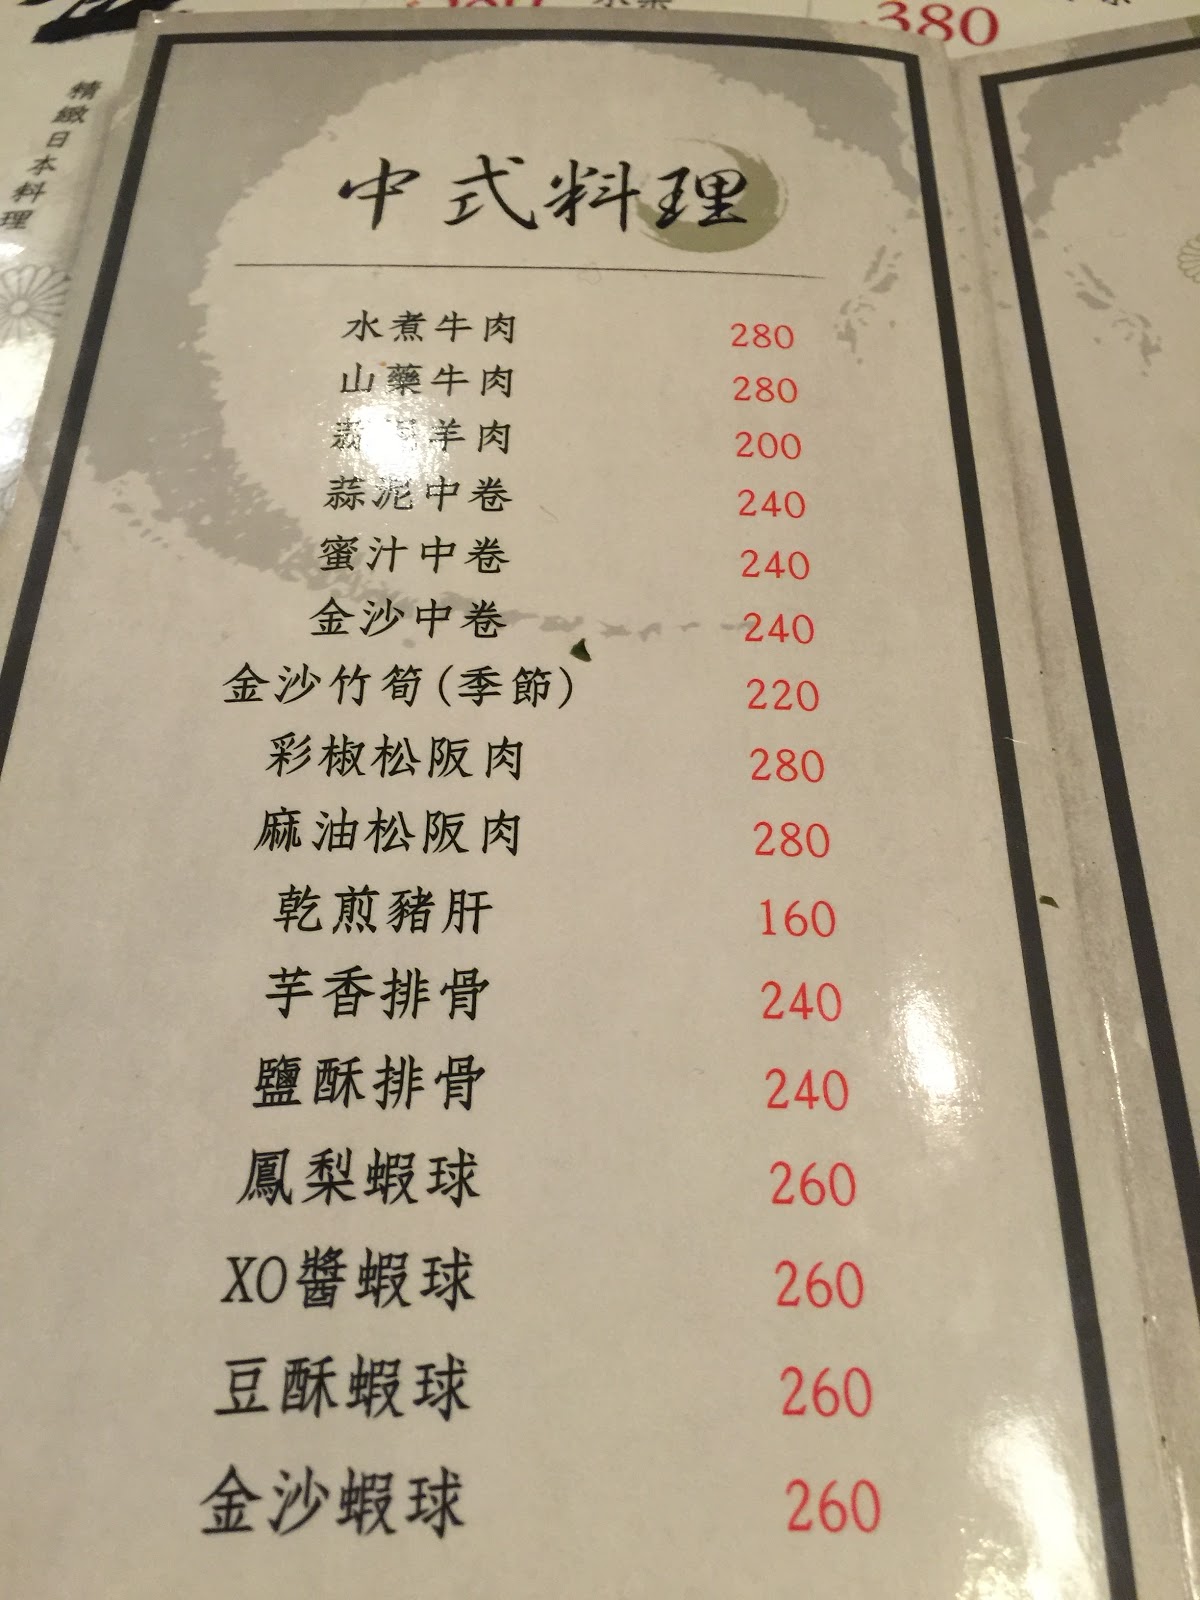 精緻日本料理
380
中式料理
水煮牛肉 280
山藥牛肉 280
羊肉 200
蒜泥中卷 240
蜜汁中卷 240
金沙中卷 240
金沙竹筍(季節) 220
彩椒松阪肉 280
麻油松阪肉 280
乾煎豬肝 160
芋香排骨 240
鹽酥排骨 240
鳳梨蝦球 260
XO醬蝦球 260
豆酥蝦球 260
金沙蝦球 260